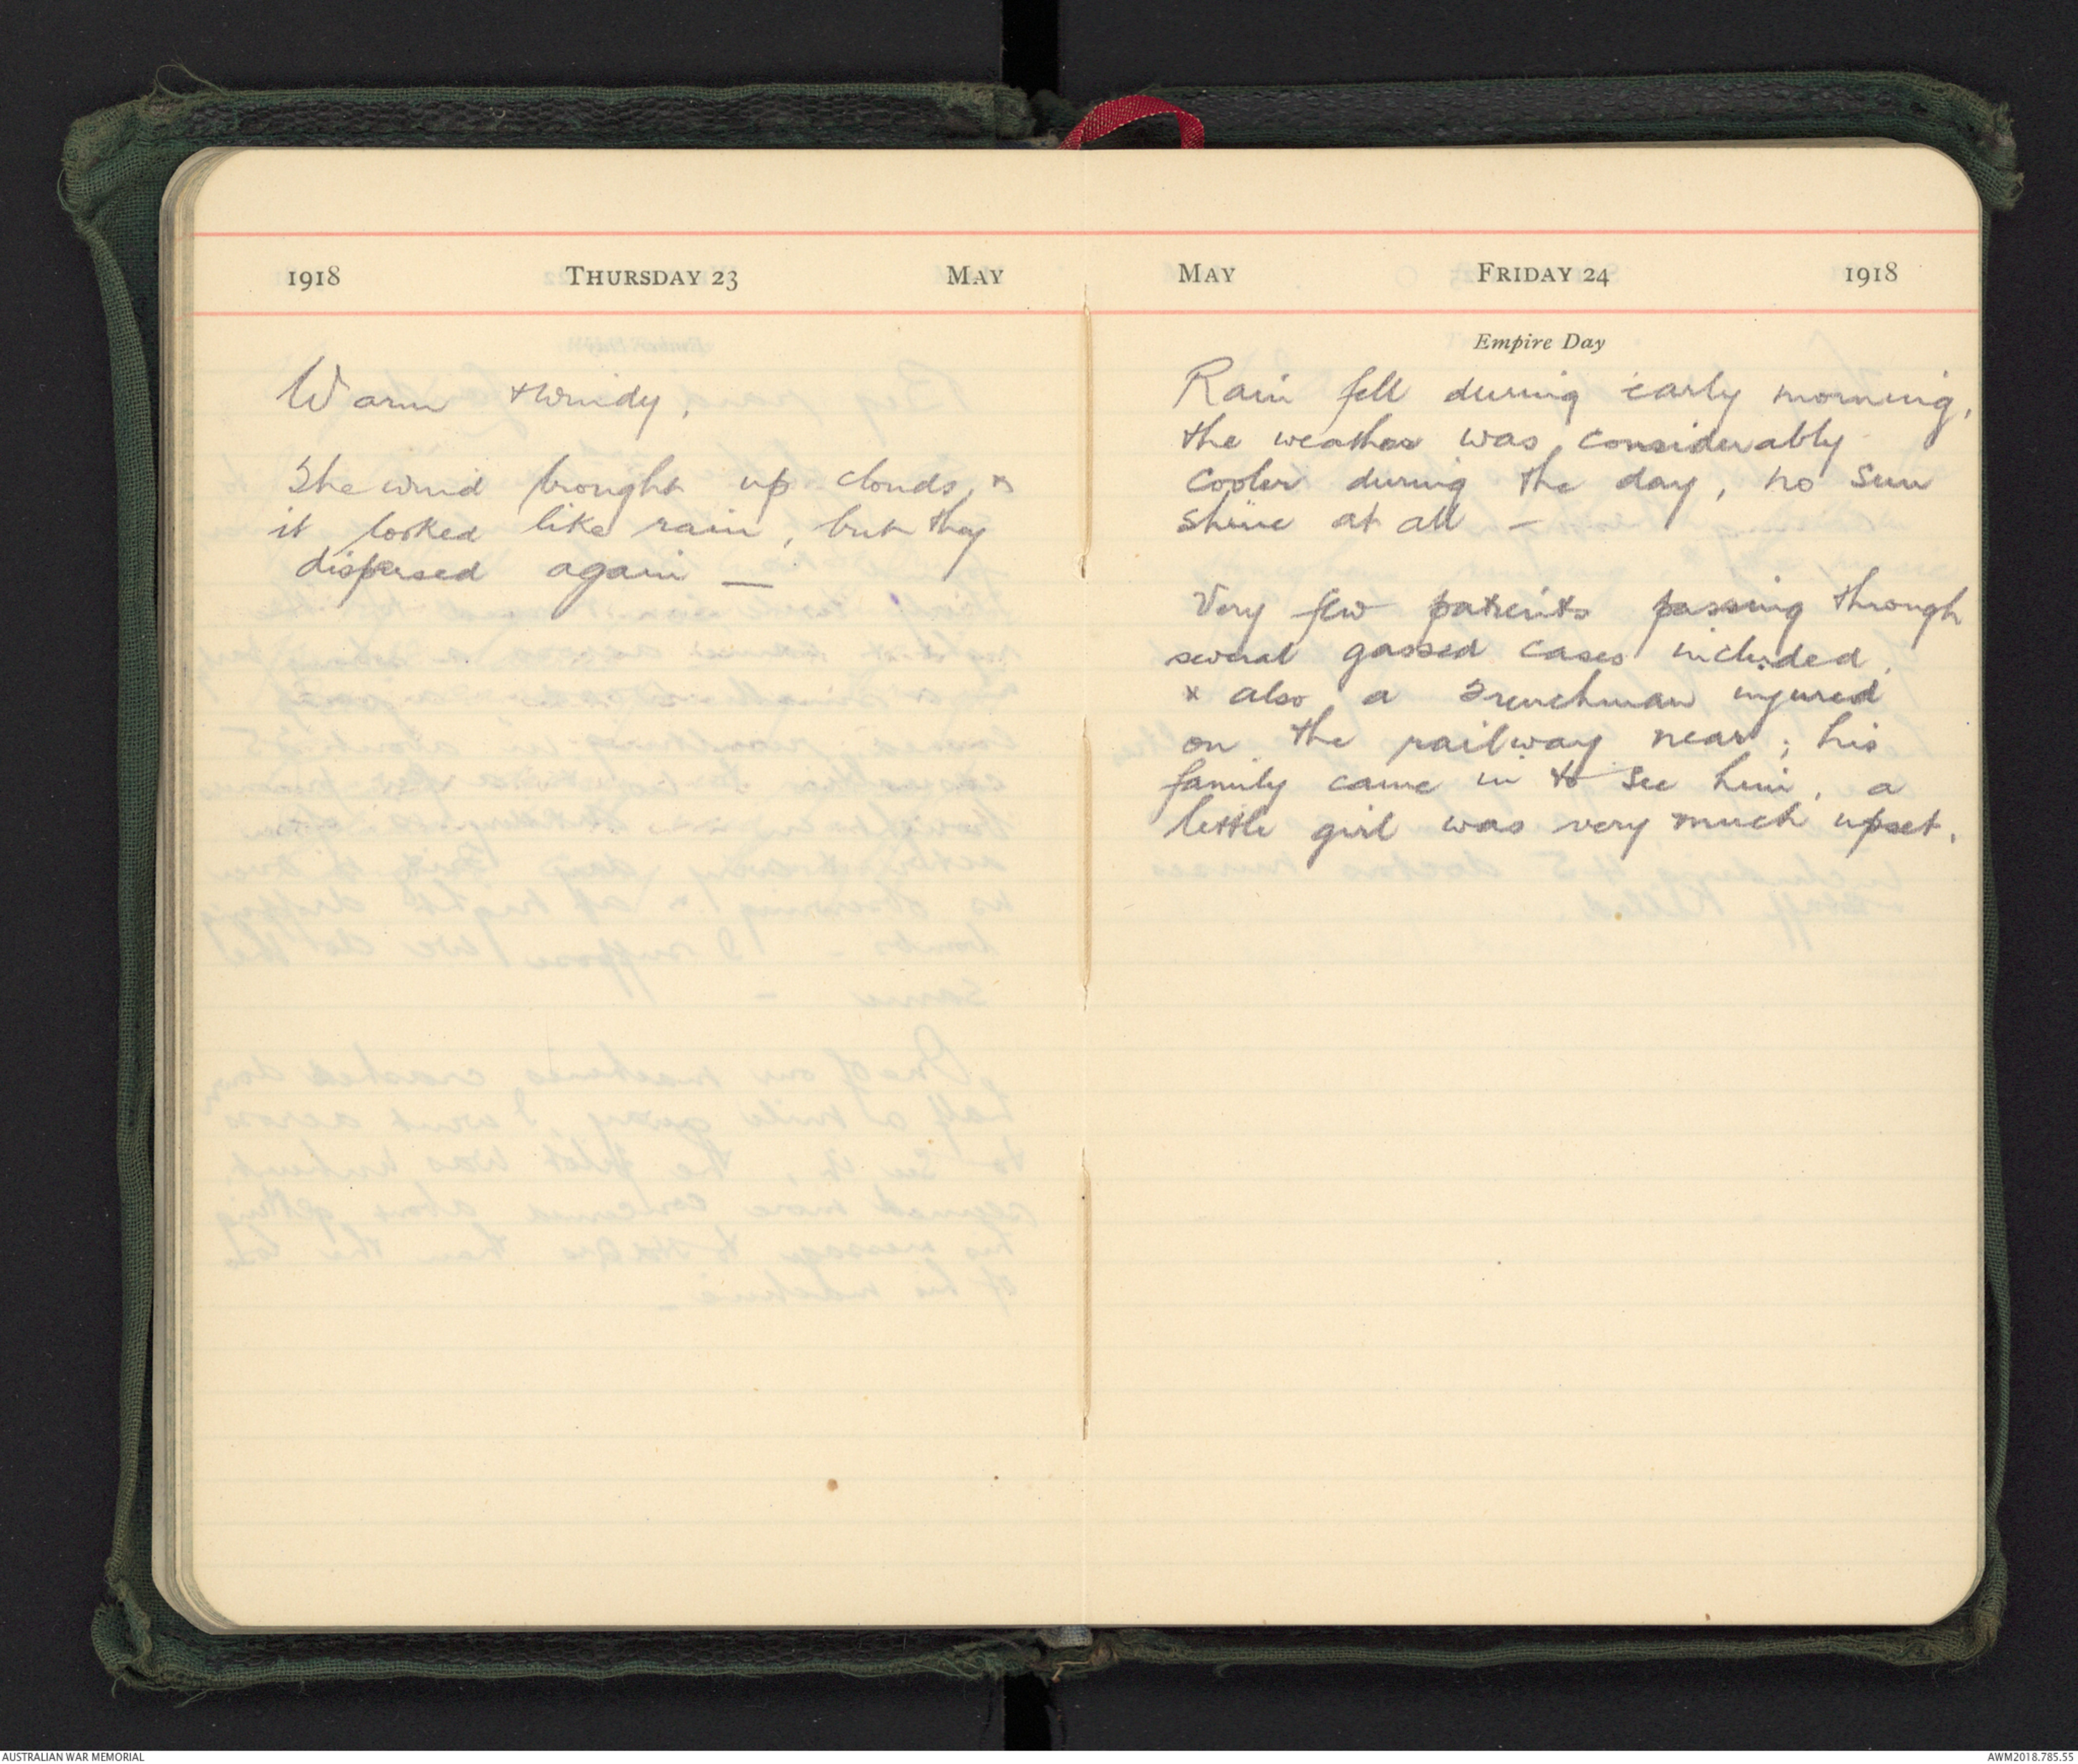 1918 THURSDAY 23 MAY
Warm & windy.
The wind brought up clouds, &
it looked like rain, but they
dispersed again —
MAY FRIDAY 24 1918
Empire Day
Rain fell during early morning,
the weather was considerably
cooler during the day, no sun
shine at all —
Very few patients passing through
several gassed cases included,
& also a Frenchman injured
on the railway near; his
family came in to see him, a
little girl was very much upset.
AUSTRALIAN WAR MEMORIAL
AWM2018.785.55